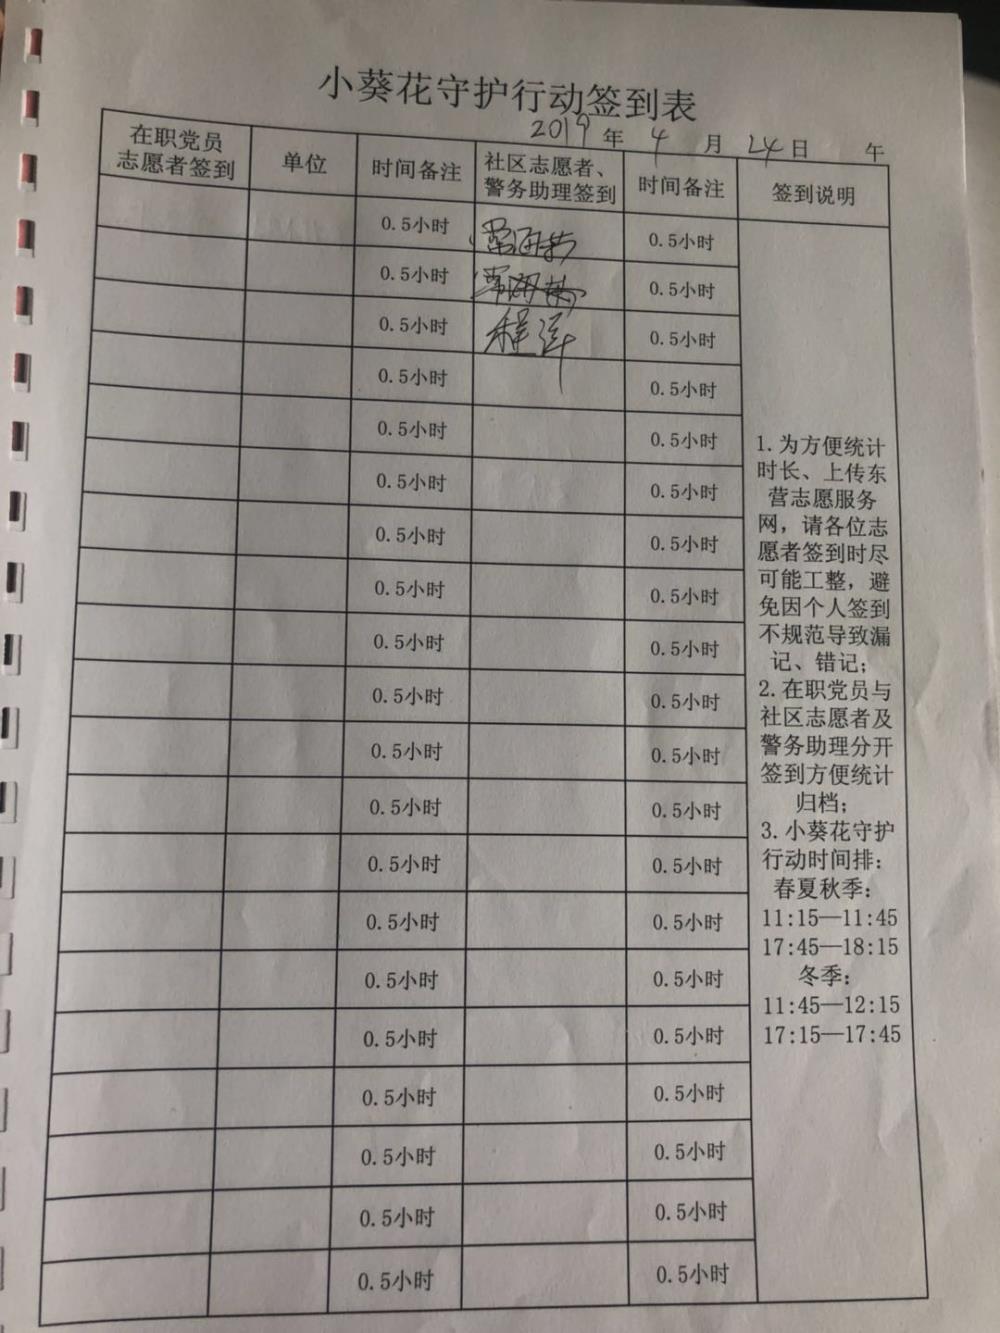 小葵花守护行动签到表
2019年4月24日 午
在职党员
志愿者签到
单位
时间备注
社区志愿者、
警务助理签到
时间备注
签到说明
0.5小时 0.5小时
0.5小时 0.5小时
0.5小时 程 0.5小时
0.5小时 0.5小时
0.5小时 0.5小时
0.5小时 0.5小时
0.5小时 0.5小时
0.5小时 0.5小时
0.5小时 0.5小时
0.5小时 0.5小时
0.5小时 0.5小时
0.5小时 0.5小时
0.5小时 0.5小时
0.5小时 0.5小时
0.5小时 0.5小时
0.5小时 0.5小时
0.5小时 0.5小时
0.5小时 0.5小时
0.5小时 0.5小时
0.5小时 0.5小时
1.为方便统计
时长、上传东
营志愿服务
网,请各位志
愿者签到时尽
可能工整,避
免因个人签到
不规范导致漏
记、错记;
2.在职党员与
社区志愿者及
警务助理分开
签到方便统计
归档;
3.小葵花守护
行动时间排:
春夏秋季:
11:15—11:45
17:45—18:15
冬季:
11:45—12:15
17:15—17:45